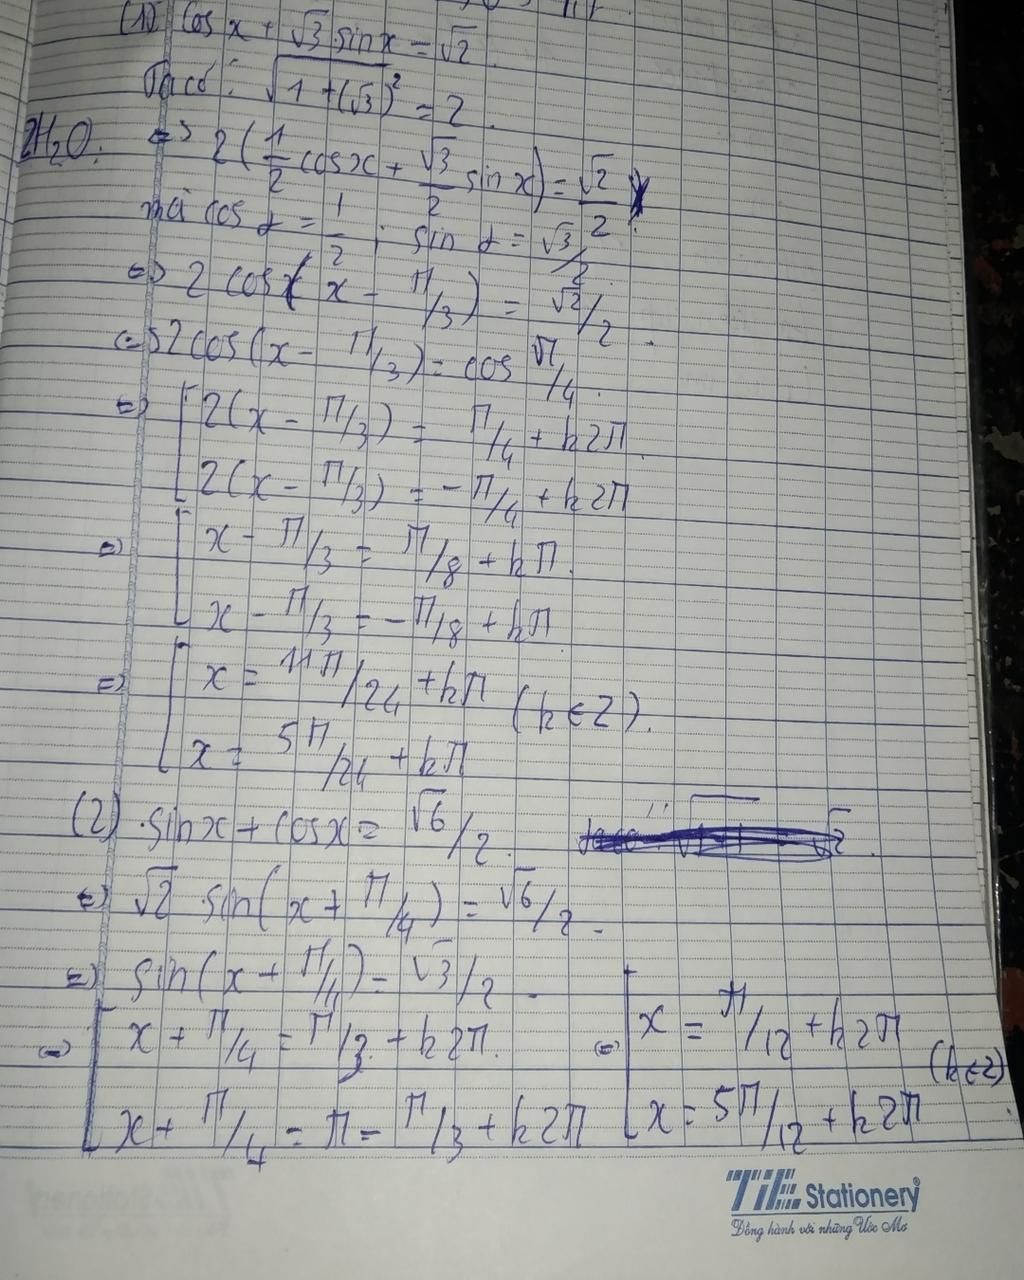 (1) cos x + √3 sin x = √2
Ta có: √(1 + (√3)²) = 2
2H₂O.
=> 2(1/2 cos x + √3/2 sin x) = √2/2
mà cos α = 1/2 ; sin α = √3/2
=> 2 cos (x - π/3) = √2/2.
=> 2 cos(x - π/3) = cos π/4.
=> [ 2(x - π/3) = π/4 + k2π
2(x - π/3) = -π/4 + k2π
=> [ x - π/3 = π/8 + kπ.
x - π/3 = -π/8 + kπ
=> [ x = 11π/24 + kπ
(k ∈ Z).
x = 5π/24 + kπ
(2) sin x + cos x = √6/2.
=> √2 sin(x + π/4) = √6/2.
=> sin(x + π/4) = √3/2.
<=> [ x + π/4 = π/3 + k2π.
x + π/4 = π - π/3 + k2π
<=> [ x = π/12 + k2π
(k ∈ Z)
x = 5π/12 + k2π
TiE Stationery
Đồng hành với những Ước Mơ